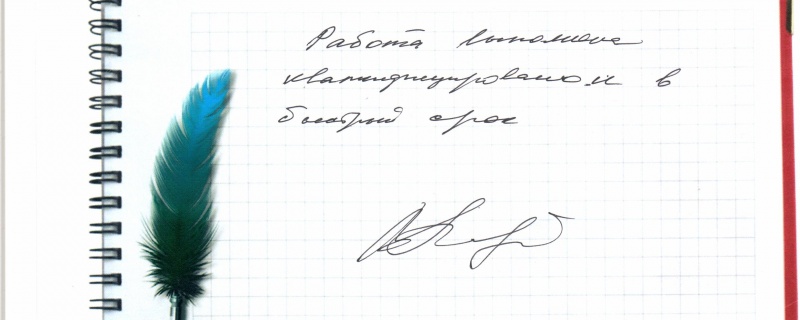 Работа выполнена
квалифицировано и в
быстрый срок